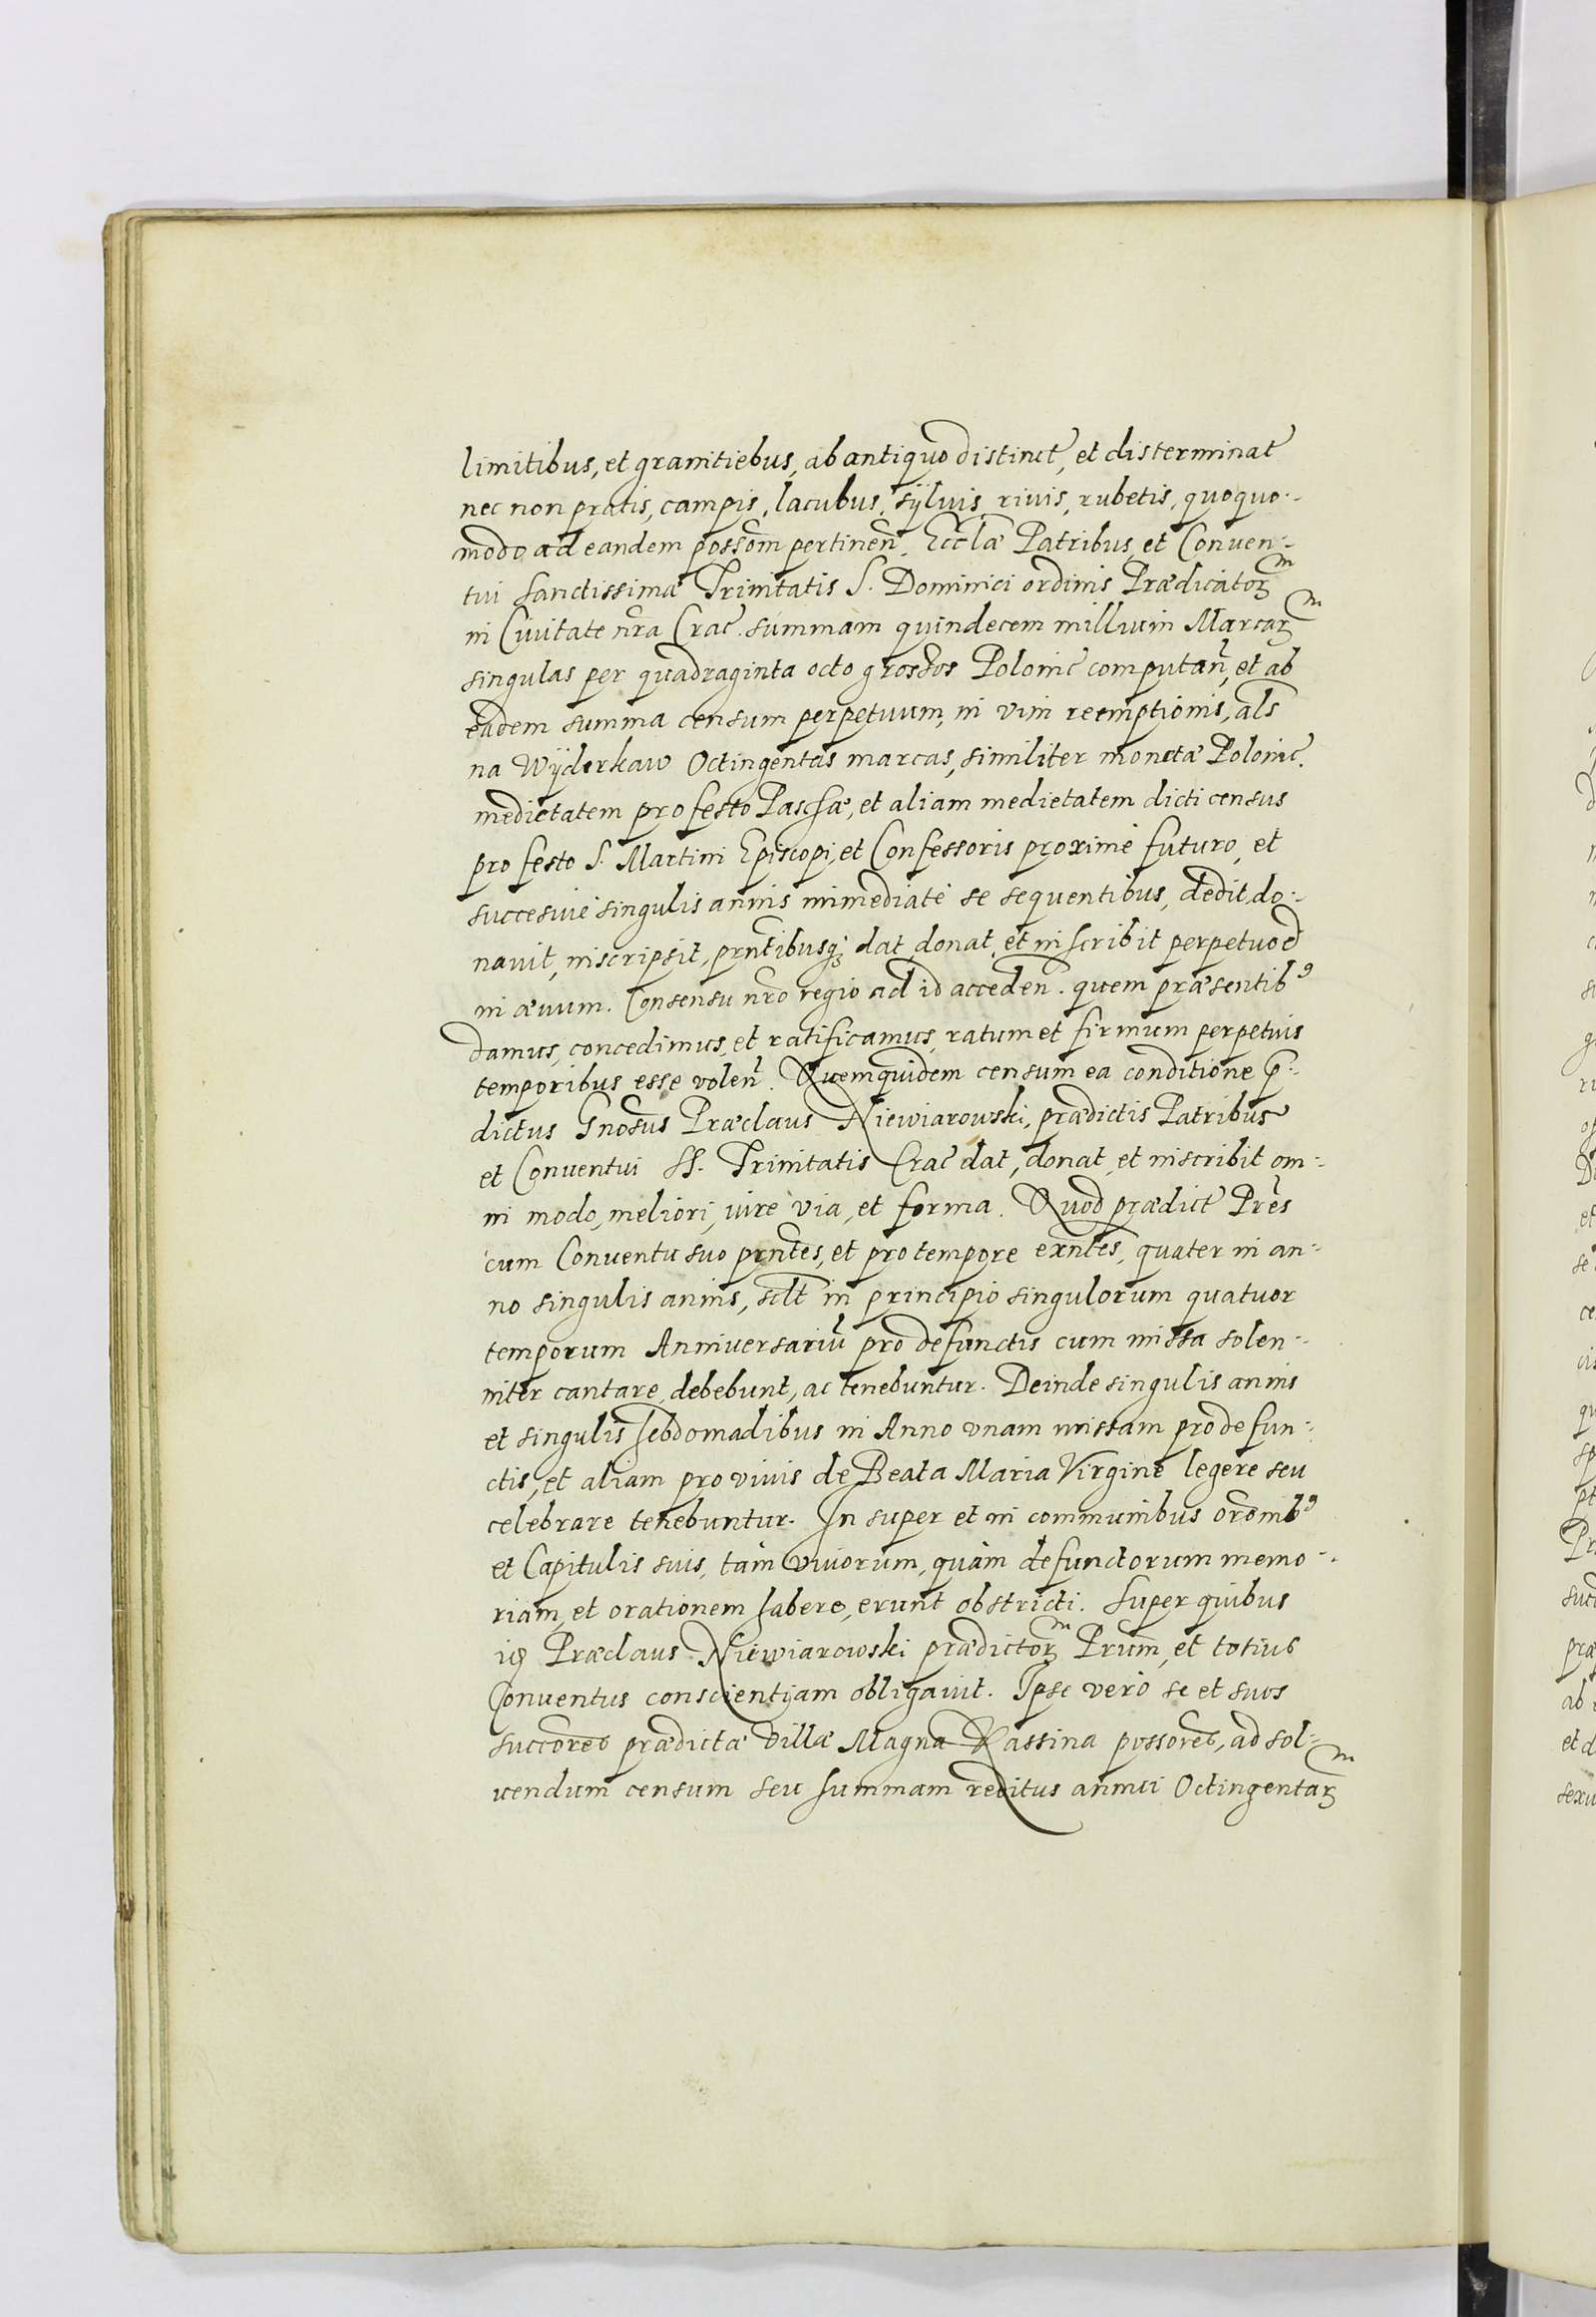 limitibus, et granitiebus, ab antiquo distinct, et disterminat
nec non pratis, campis, lacubus, sÿluis, riuis, rubetis, quoquo-
modo ad eandem possom̃ pertineñ. Eccl̃æ Patribus, et Conuen-
tui Sanctissimæ Trinitatis S. Dominici ordinis Prædicatorꝝ
in Ciuitate nr̃a Crac̃. summam quindecem millium Marcarꝝ
singulas per quadraginta octo grossos Polonic̃ computañ, et ab
eadem summa censum perpetuum, in vim reemptionis, al̃s
na Wÿderkaw Octingentas marcas, similiter monetæ Polonic̃.
medietatem pro festo Paschæ, et aliam medietatem dicti census
pro festo S. Martini Episcopi, et Confessoris proximè futuro, et
succesiuè singulis annis immediatè se sequentibus, dedit, do-
nauit, inscripsit, pr̃ntibusqꝫ dat, donat, et inscribit perpetuo et
in æuum. Consensu nr̃o regio ad id accedeñ. quem præsentibꝰ
damus, concedimus, et ratificamus, ratum et firmum perpetuis
temporibus esse voleñ. Quemquidem censum ea conditione p̃-
dictus Gnosũs Præclaus Niewiarowski, prædictis Patribus
et Conuentui SS. Trinitatis Crac̃ dat, donat, et inscribit om-
ni modo, meliori, iure via, et forma. Quod prædict Prẽs
cum Conuentu suo prñtes, et pro tempore exñtes, quater in an-
no singulis annis, scl̃t in principio singulorum quatuor
temporum Anniuersariũ pro defunctis cum missa solen-
niter cantare, debebunt, ac tenebuntur. Deinde singulis annis
et singulis hebdomadibus in Anno vnam missam pro defun-
ctis, et aliam pro viuis de Beata Maria Virgine legere seu
celebrare tenebuntur. In super et in communibus orõnibꝰ
et Capitulis suis, tàm viuorum, quàm defunctorum memo-
riam, et orationem habere, erunt obstricti. Super quibus
Præclaus Niewiarowski prædictorꝝ Prum̃, et totius
Conuentus conscientiam obligauit. Ipse verò se et suos
succorẽs prædictæ villæ Magna Kassina possorẽs, ad sol-
uendum censum seu summam reditus annui Octingentarꝝ